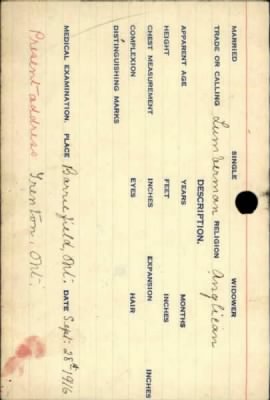 MARRIED SINGLE WIDOWER
TRADE OR CALLING Lumberman RELIGION Anglican
DESCRIPTION.
APPARENT AGE YEARS MONTHS
HEIGHT FEET INCHES
CHEST MEASUREMENT INCHES EXPANSION INCHES
COMPLEXION EYES HAIR
DISTINGUISHING MARKS
MEDICAL EXAMINATION. PLACE Barriefield, Ont. DATE Sept. 28th 1916
Present address Trenton, Ont.